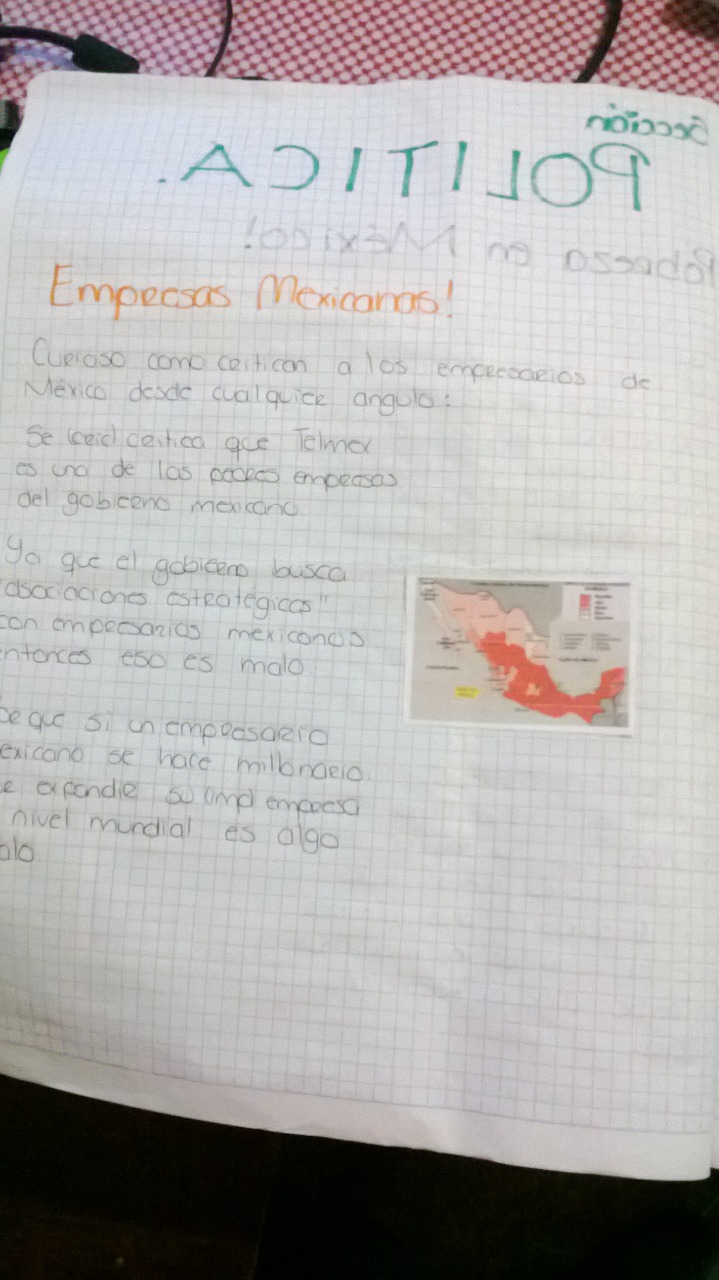 Sección
POLITICA.
Pobreza en Mexico!
Empresas Mexicanas!
Curioso como critican a los empresarios de
México desde cualquier angulo:
Se critica que Telmex
es una de las empresas
del gobierno mexicano
Ya que el gobierno busca
asociaciones estratégicas"
con empresarios mexicanos
ntonces eso es malo.
que si un empresario
exicano se hace millonario
e expandir su (emp) empresa
nivel mundial es algo
alo